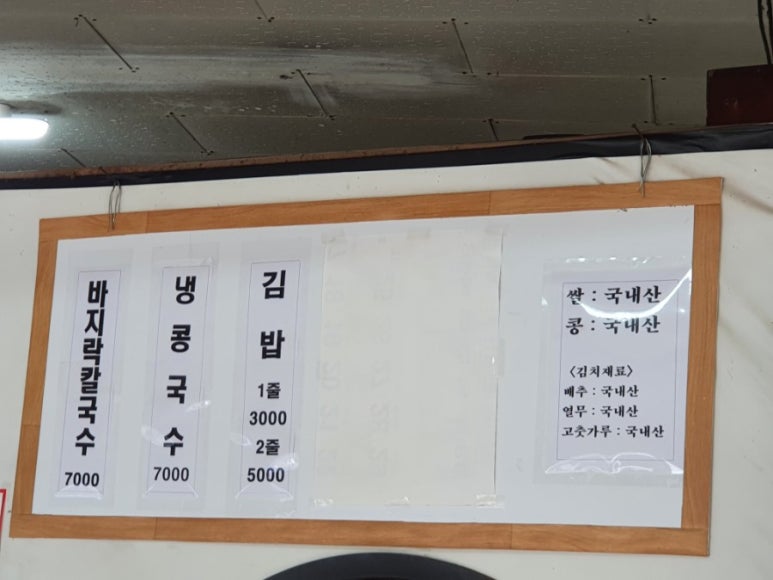 바지락칼국수
7000
냉콩국수
7000
김밥
1줄
3000
2줄
5000
쌀 : 국내산
콩 : 국내산
〈김치재료〉
배추 : 국내산
열무 : 국내산
고춧가루 : 국내산